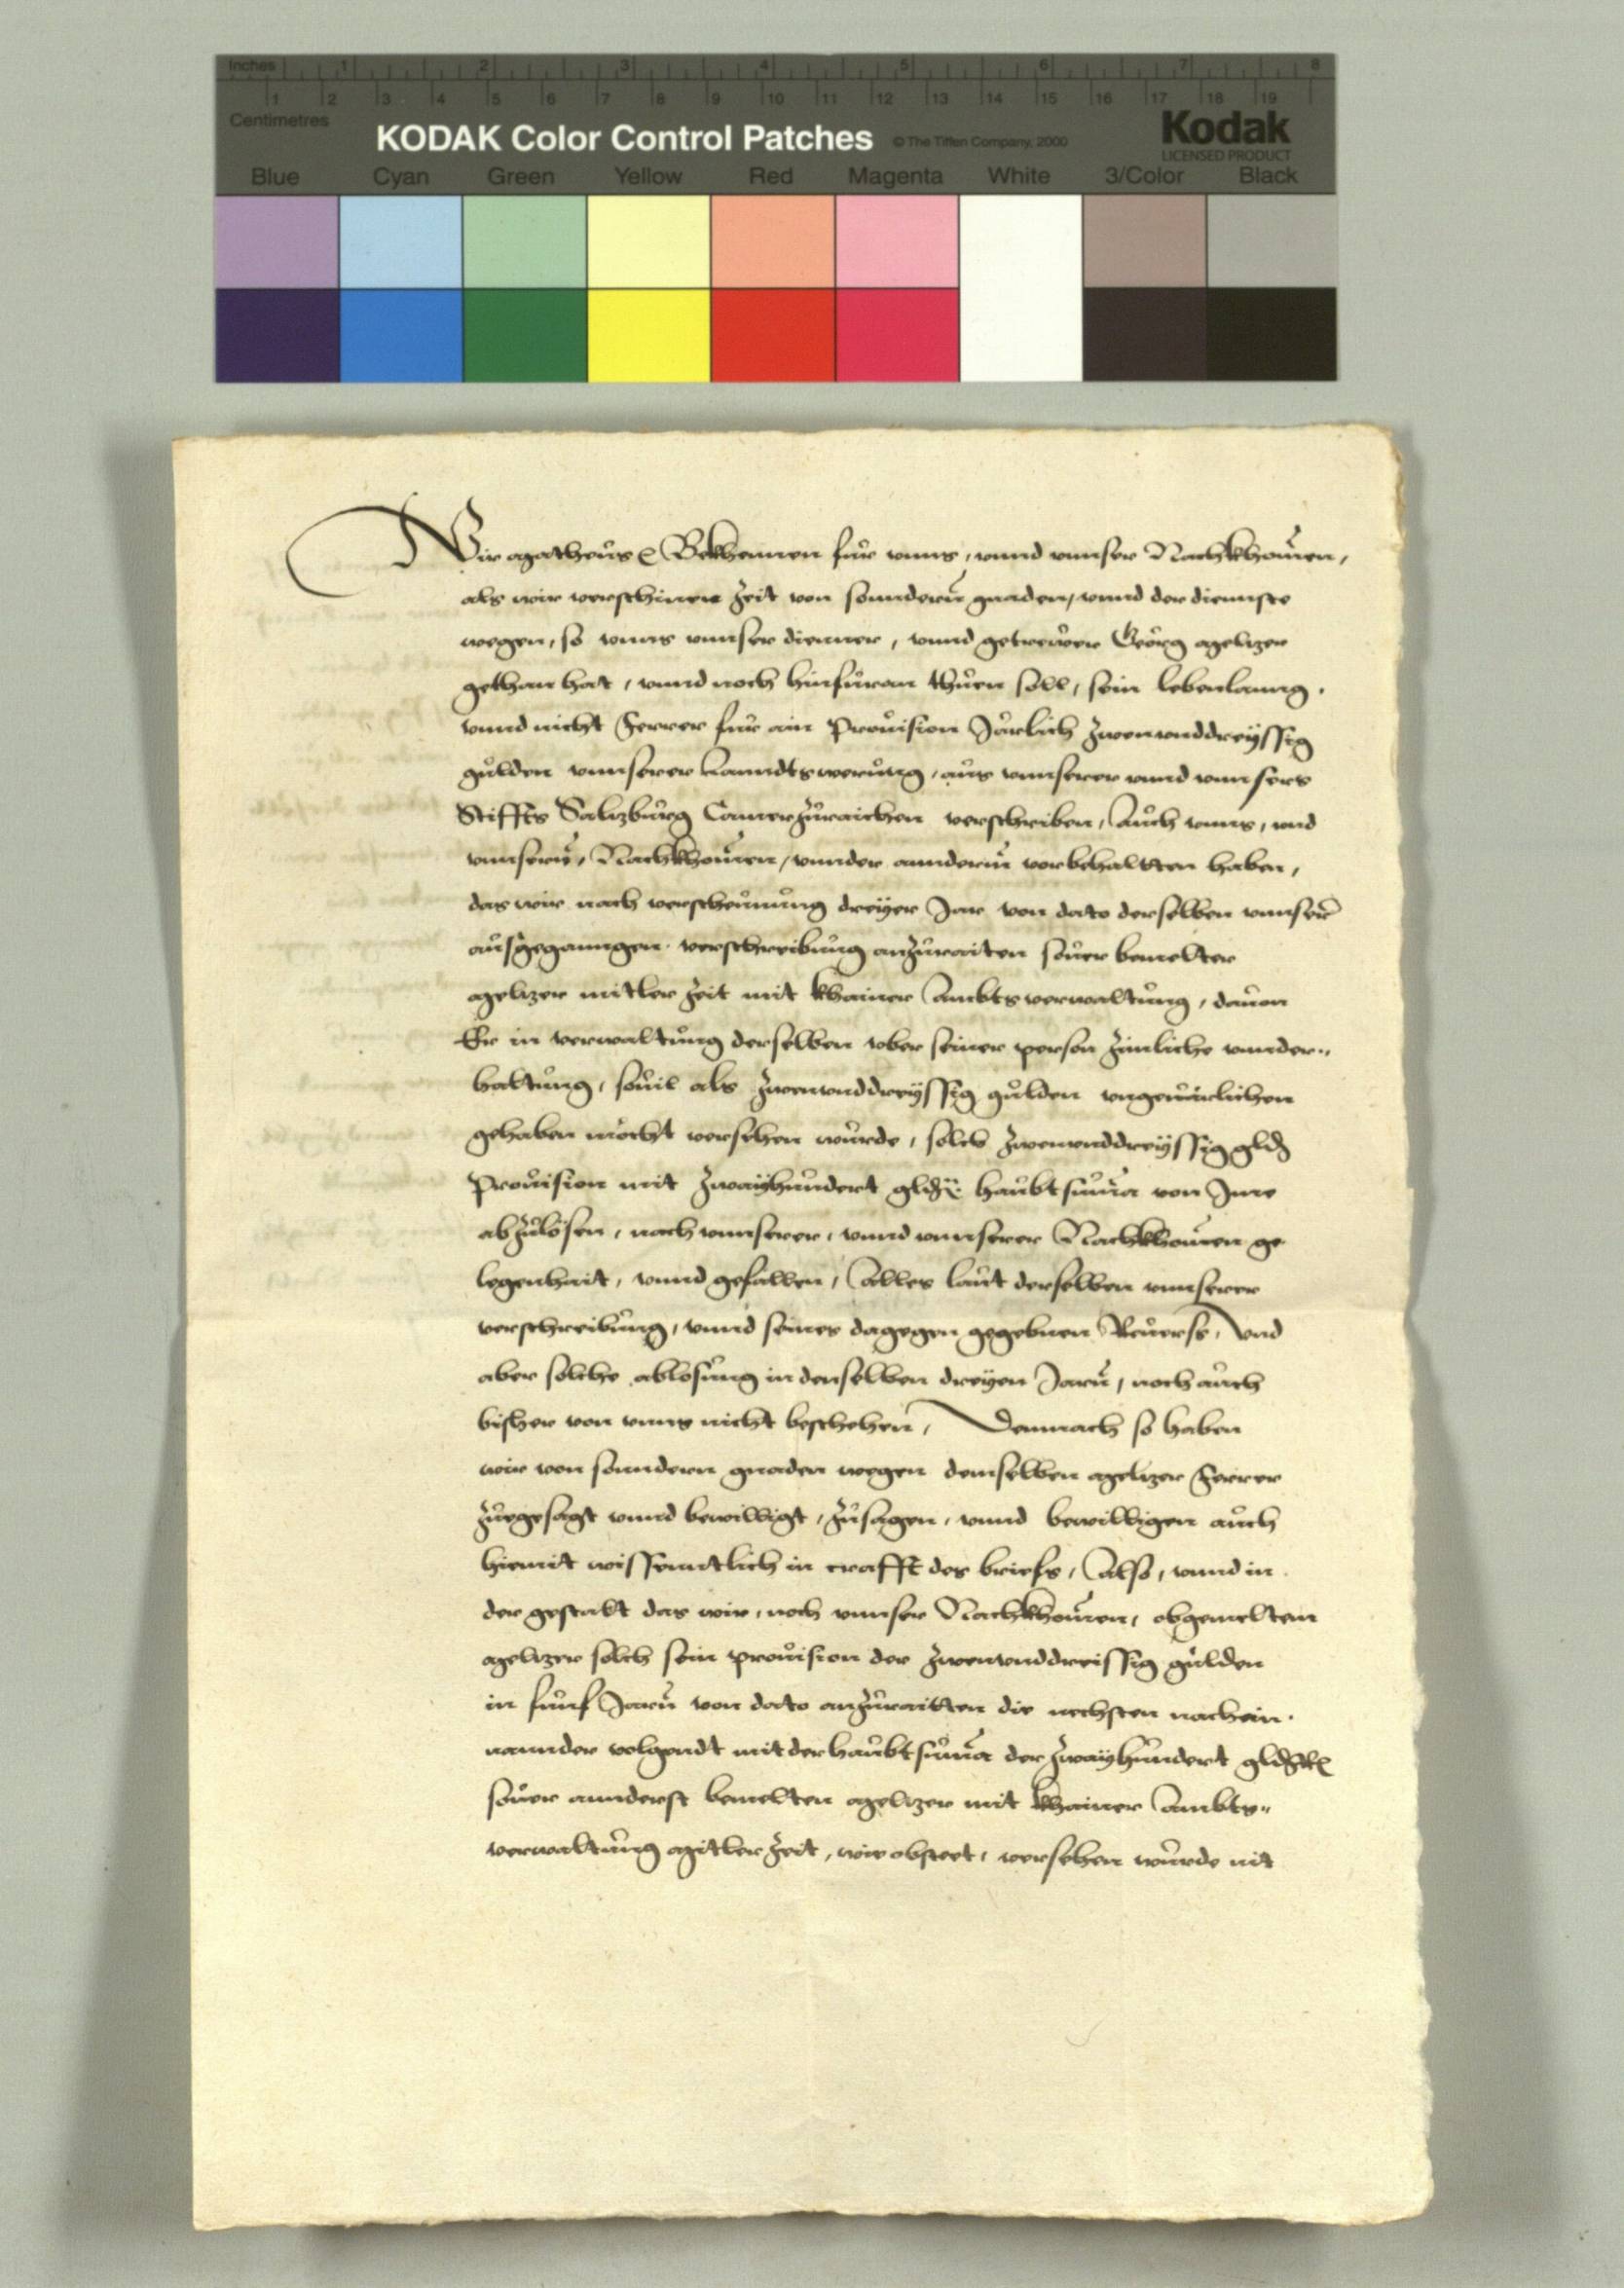 Inches 1 2 3 4 5 6 7 8
1 2 3 4 5 6 7 8 9 10 11 12 13 14 15 16 17 18 19
Centimetres
KODAK Color Control Patches © The Tiffen Company, 2000 Kodak
LICENSED PRODUCT
Blue Cyan Green Yellow Red Magenta White 3/Color Black
Wir Matheus Bekhennen für vnns, vnnd vnnser Nachkhomen,
als wir verschinen Zeit von sonndern gnaden, vnnd der diennste
wegen, so vnns vnnser dienner, vnnd getrewer Georg Melzer
gethan hat, vnnd noch hinfüran thuen soll, sein lebenlanng,
vnnd nicht ferrer für ain Provision Järlich zwenvnddreyssig
gulden vnnserer Lanndtswerung, aus vnnserer vnnd vnnsers
Stiffts Salzburg Camer zuraichen verschriben, Auch vnns, vnd
vnnsern, Nachkhomen, vnnder anndern vorbehaltten haben,
das wir nach verscheinung dreyer Jar von dato derselben vnnser
ausgeganngen verschreibung anzuraiten, souer bemelter
Melzer mitler Zeit mit khainer Ambtsverwaltung, dauon
Er in verwaltung derselben vber seiner person zimliche vnnder„
haltung, souil als zwenvnddreyssig gulden vngeuärlichen
gehaben möcht versehen wurde, solch zwenvnddreyssig gld
Provision mit zwayhundert gld haubtsuma von Jme
abzulösen, nach vnnserer, vnnd vnnserer Nachkhomen ge
legenhait, vnnd gefallen, Alles laut derselben vnnserer
verschreibung, vnnd seines dagegen gegebnen Reuerss, Vnd
aber solche ablosung in denselben dreyen Jarn, noch auch
bisher von vnns nicht beschehen, Demnach so haben
wir von sonndern gnaden wegen demselben Melzer ferrer
zuegesagt vnnd bewilligt, zusagen, vnnd bewilligen auch
hiemit wissenntlich in crafft des briefs, Also, vnnd in
der gestalt das wir, noch vnnser Nachkhomen, obgemelten
Melzer solch sein prouision der zwenvnddreissig gulden
in funf Jarn von dato anzuraitten die nechsten nachein
nannder volgendt mit der haubtsuma der zwayhundert gld
souer annderst bemelten Melzer mit khainer Ambts„
verwaltung Mitler Zeit, wie obsteet, versehen wurde nit